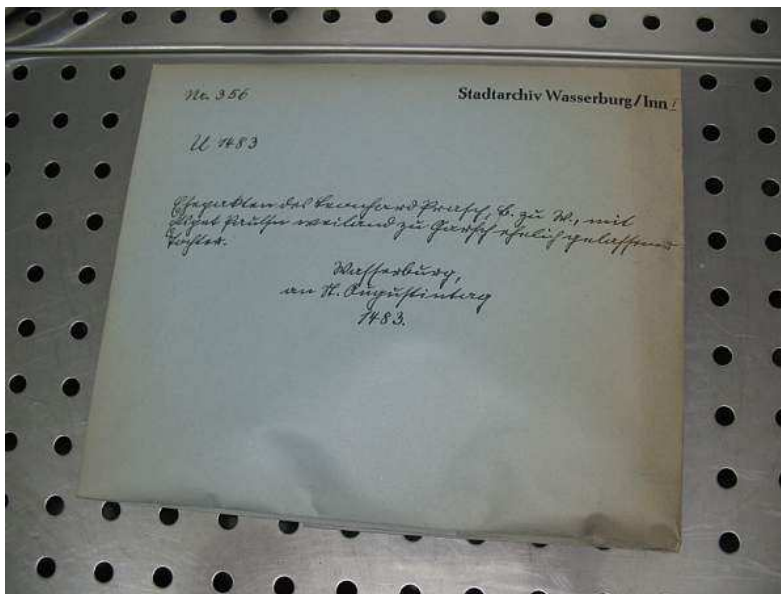 Nr. 356
Stadtarchiv Wasserburg/Inn I
U 1483
Ehepakten des Leonhard Prasch, B. zu W., mit
weiland zu Garsch ehelich gelassene
Tochter.
Wasserburg,
an St. Augustintag
1483.